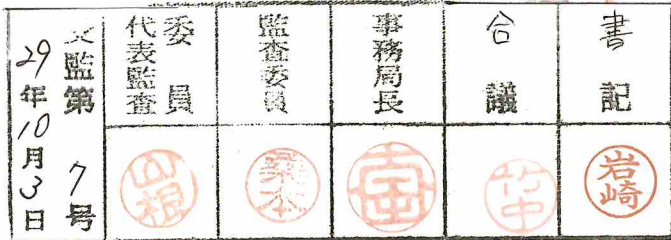 書記
合議
事務局長
監査委員
代表監査委員
文監第7号
29年10月3日
岩崎
竹中
桑本
山根